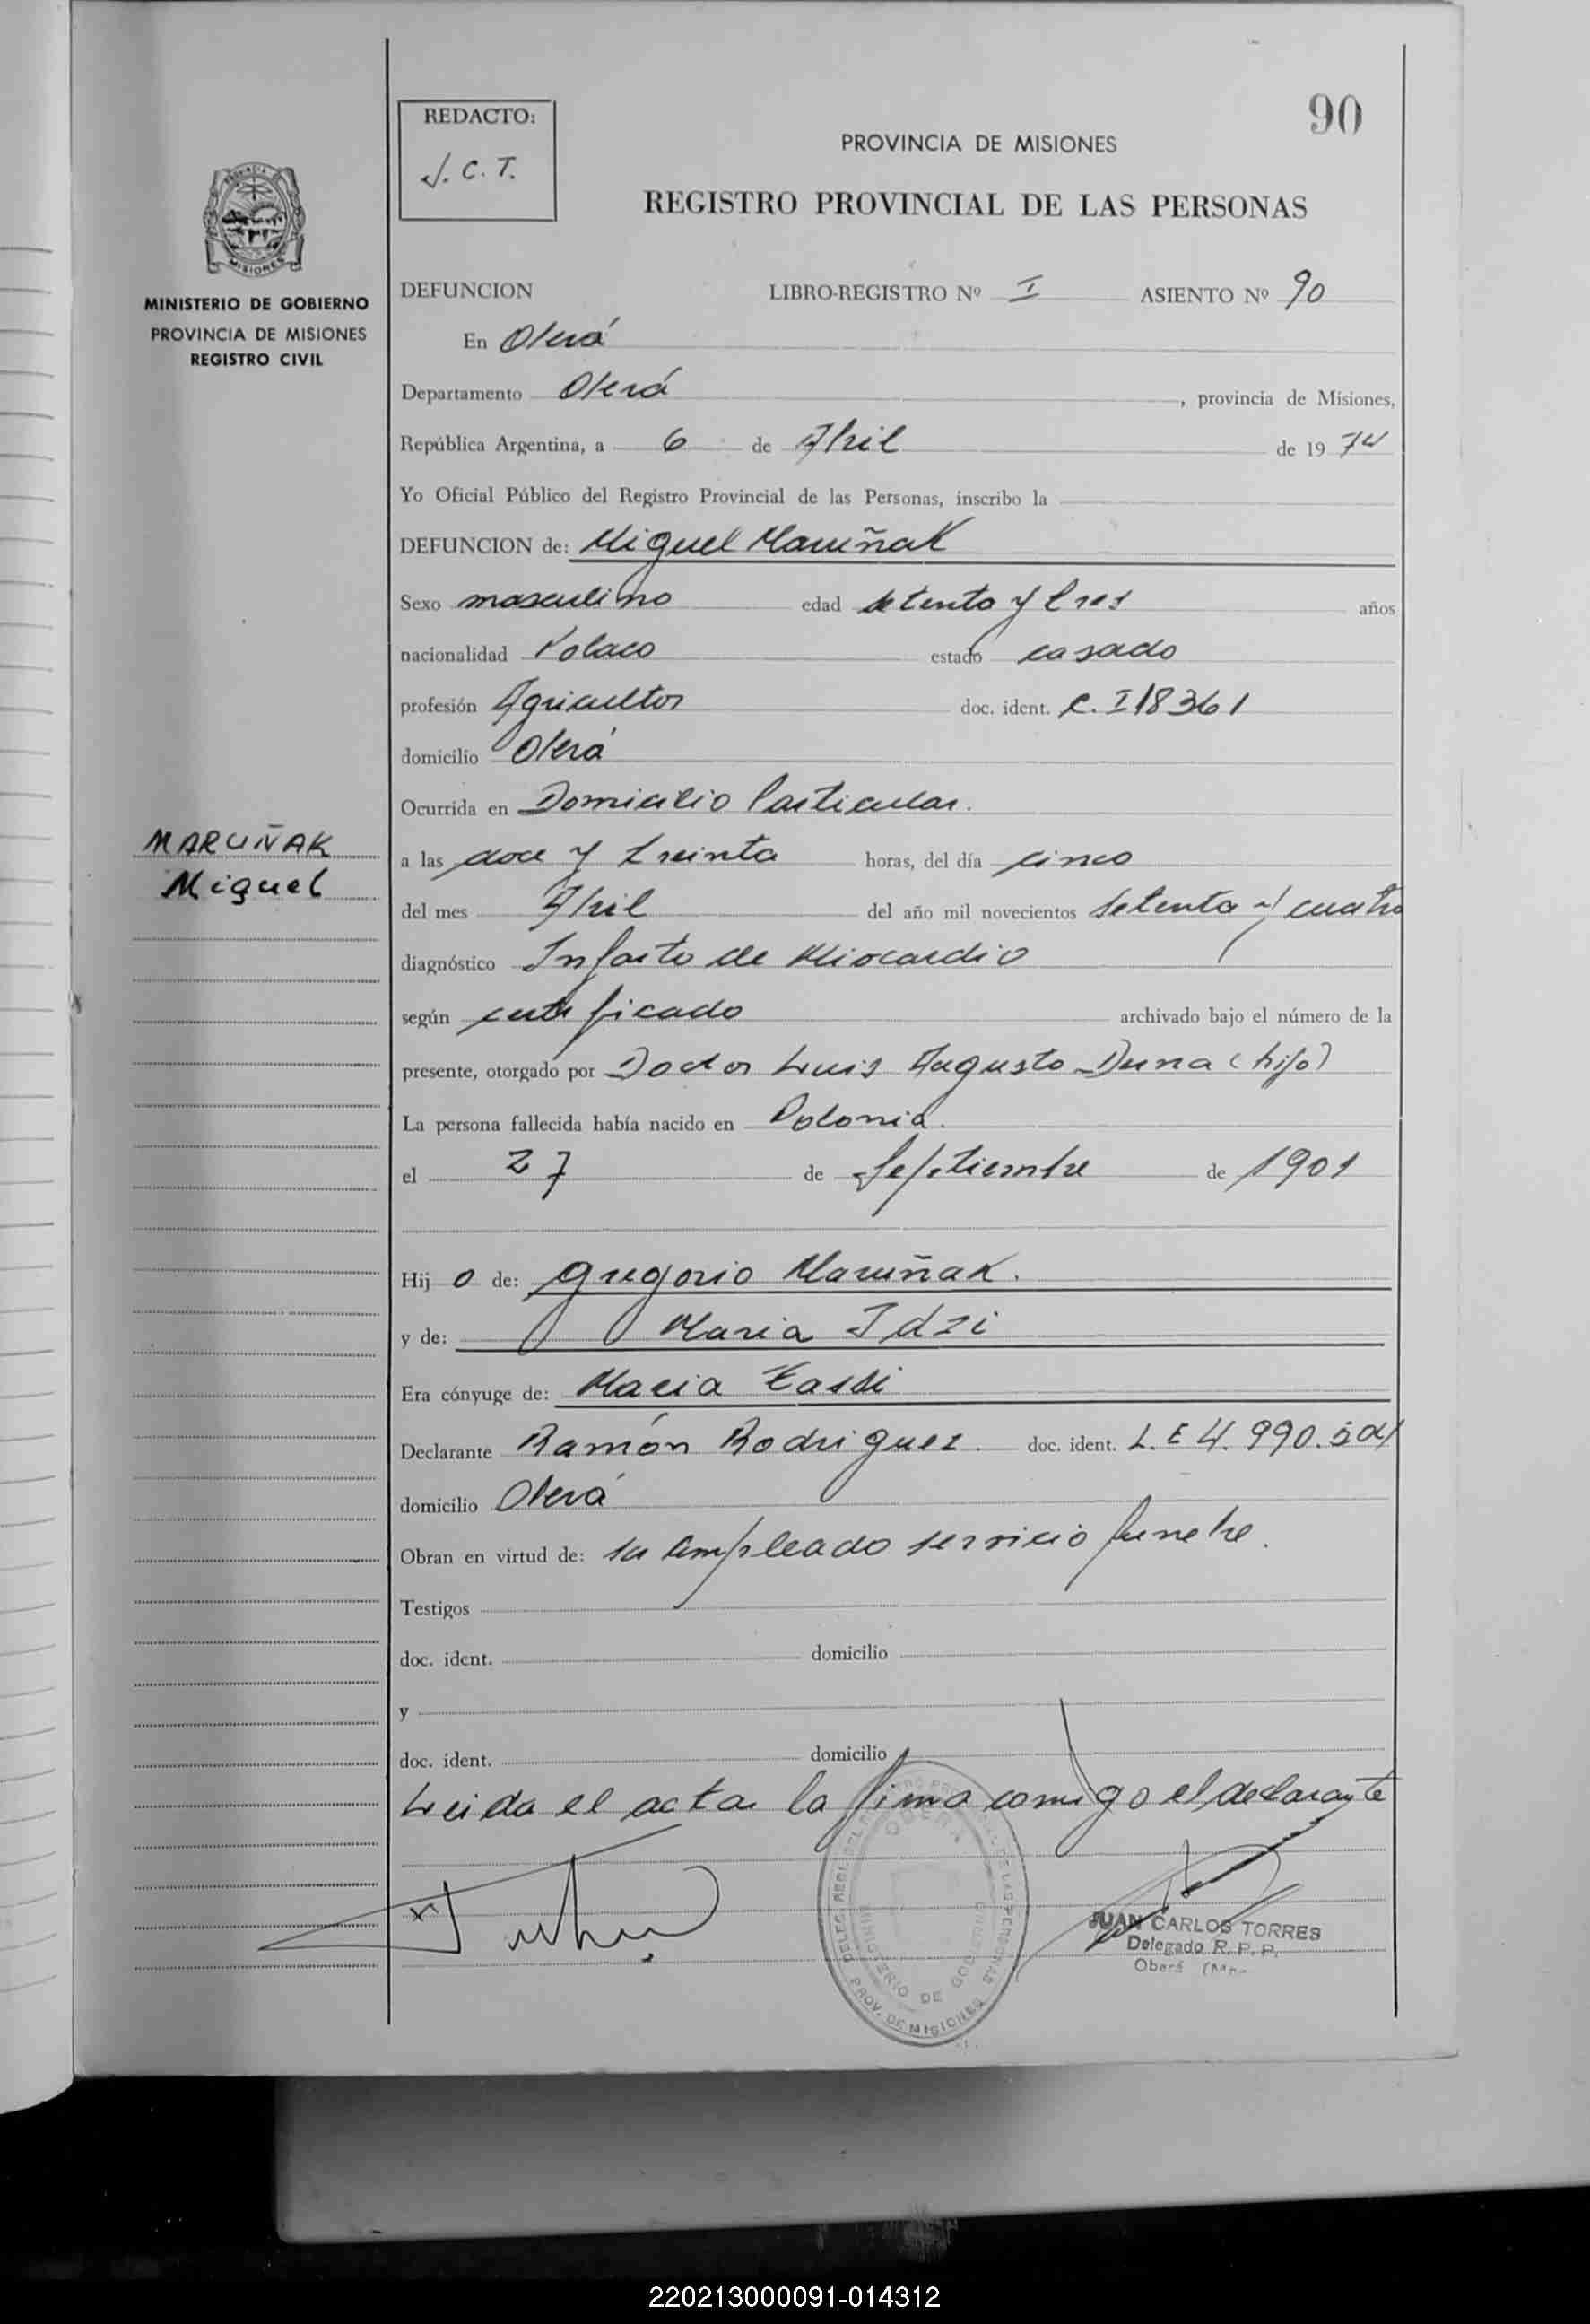 90
REDACTO:
J. C. T.
PROVINCIA DE MISIONES
REGISTRO PROVINCIAL DE LAS PERSONAS
MISIONES
MINISTERIO DE GOBIERNO
PROVINCIA DE MISIONES
REGISTRO CIVIL
DEFUNCION LIBRO-REGISTRO Nº I ASIENTO Nº 90
En Oberá
Departamento Oberá, provincia de Misiones,
República Argentina, a 6 de Abril de 1974
Yo Oficial Público del Registro Provincial de las Personas, inscribo la
DEFUNCION de: Miguel Maruñak
Sexo masculino edad setenta y tres años
nacionalidad Polaco estado casado
profesión Agricultor doc. ident. C. I 18361
domicilio Oberá
Ocurrida en Domicilio Particular.
MARUÑAK
Miguel
a las doce y treinta horas, del día cinco
del mes Abril del año mil novecientos setenta y cuatro
diagnóstico Infarto de Miocardio
según certificado archivado bajo el número de la
presente, otorgado por Doctor Luis Augusto Derna (hijo)
La persona fallecida había nacido en Polonia.
el 27 de Septiembre de 1901
Hij o de: Gregorio Maruñak.
y de: Maria Idzi
Era cónyuge de: Maria
Declarante Ramón Rodriguez. doc. ident. L. E 4. 990.
domicilio Oberá
Obran en virtud de: su empleado servicio funebre.
Testigos
doc. ident. domicilio
y
doc. ident. domicilio
Leida el acta la firma comigo el declarante
OBERA
MINISTERIO DE GOBIERNO
PROV. DE MISIONES
JUAN CARLOS TORRES
Delegado R. P. P.
Oberá
220213000091-014312